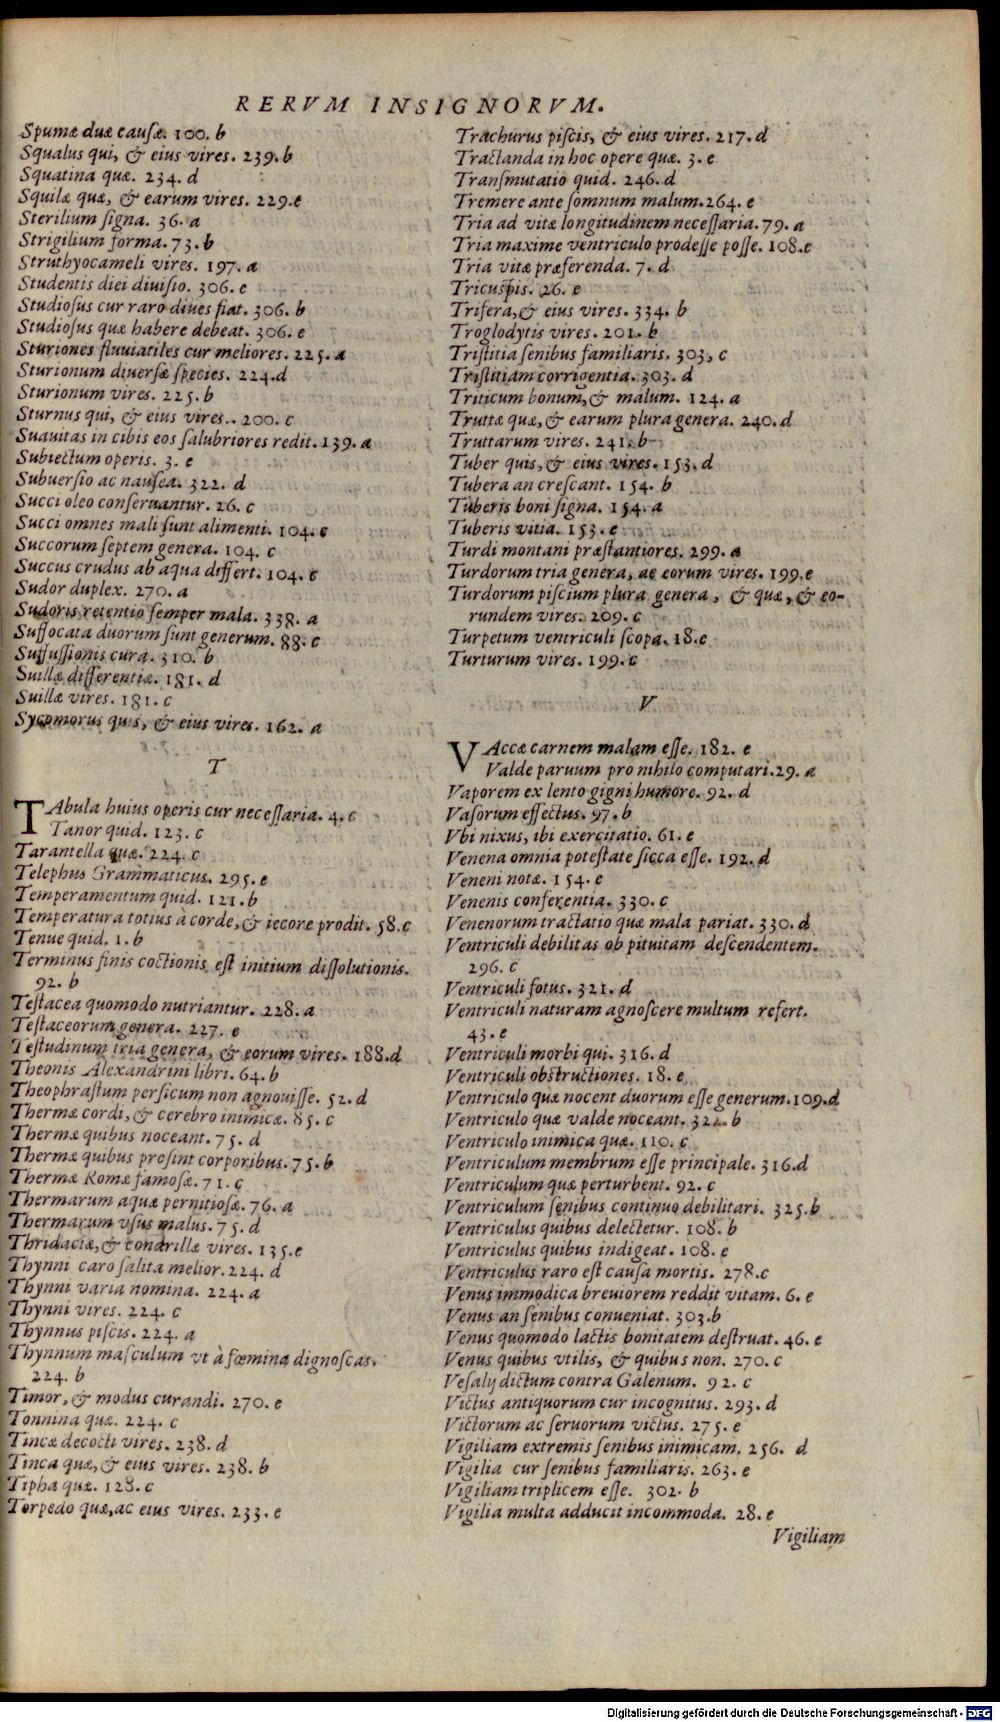 RERVM INSIGNORVM.
Spumæ duæ cauſæ. 100. b
Squalus qui, & eius vires. 239. b
Squatina quæ. 234. d
Squilæ quæ, & earum vires. 229. e
Sterilium ſigna. 36. a
Strigilium forma. 73. b
Struthyocameli vires. 197. a
Studentis diei diuiſio. 306. e
Studioſus cur raro diues fiat. 306. b
Studioſus quæ habere debeat. 306. e
Sturiones fluuiatiles cur meliores. 225. a
Sturionum diuerſæ ſpecies. 224. d
Sturionum vires. 225. b
Sturnus qui, & eius vires.. 200. c
Suauitas in cibis eos ſalubriores redit. 139. a
Subiectum operis. 3. e
Subuerſio ac nauſea. 322. d
Succi oleo conſeruantur. 26. c
Succi omnes mali ſunt alimenti. 104. e
Succorum ſeptem genera. 104. c
Succus crudus ab aqua differt. 104. c
Sudor duplex. 270. a
Sudoris retentio ſemper mala. 338. a
Suffocata duorum ſunt generum. 88. c
Suffuſſionis cura. 310. b
Suillæ differentiæ. 181. d
Suillæ vires. 181. c
Sycomorus quis, & eius vires. 162. a
T
TAbula huius operis cur neceſſaria. 4. c
Tanor quid. 123. c
Tarantella quæ. 224. c
Telephus Grammaticus. 295. e
Temperamentum quid. 121. b
Temperatura totius à corde, & iecore prodit. 58. c
Tenue quid. 1. b
Terminus finis coctionis eſt initium diſſolutionis.
92. b
Teſtacea quomodo nutriantur. 228. a
Teſtaceorum genera. 227. e
Teſtudinum tria genera, & eorum vires. 188. d
Theonis Alexandrini libri. 64. b
Theophraſtum perſicum non agnouiſſe. 52. d
Thermæ cordi, & cerebro inimicæ. 85. c
Thermæ quibus noceant. 75. d
Thermæ quibus proſint corporibus. 75. b
Thermæ Romæ famoſæ. 71. c
Thermarum aquæ pernitioſæ. 76. a
Thermarum vſus malus. 75. d
Thridaciæ, & condrillæ vires. 135. e
Thynni caro ſalita melior. 224. d
Thynni varia nomina. 224. a
Thynni vires. 224. c
Thynnus piſcis. 224. a
Thynnum maſculum vt à fœmina dignoſcas.
224. b
Timor, & modus curandi. 270. e
Tonnina quæ. 224. c
Tincæ decocti vires. 238. d
Tinca quæ, & eius vires. 238. b
Tipha quæ. 128. c
Torpedo quæ, ac eius vires. 233. e
Trachurus piſcis, & eius vires. 217. d
Tractanda in hoc opere quæ. 3. e
Tranſmutatio quid. 246. d
Tremere ante ſomnum malum. 264. e
Tria ad vitæ longitudinem neceſſaria. 79. a
Tria maxime ventriculo prodeſſe poſſe. 108. e
Tria vitæ præferenda. 7. d
Tricuſpis. 26. e
Trifera, & eius vires. 334. b
Troglodytis vires. 201. b
Triſtitia ſenibus familiaris. 303, c
Triſtitiam corrigentia. 303. d
Triticum bonum, & malum. 124. a
Truttæ quæ, & earum plura genera. 240. d
Truttarum vires. 241. b
Tuber quis, & eius vires. 153. d
Tubera an creſcant. 154. b
Tuberis boni ſigna. 154. a
Tuberis vitia. 153. e
Turdi montani præſtantiores. 299. a
Turdorum tria genera, ac eorum vires. 199. e
Turdorum piſcium plura genera, & quæ, & eo-
rundem vires. 209. c
Turpetum ventriculi ſcopa. 18. e
Turturum vires. 199. c
V
VAccæ carnem malam eſſe. 182. e
Valde paruum pro nihilo computari. 29. a
Vaporem ex lento gigni humore. 92. d
Vaſorum effectus. 97. b
Vbi nixus, ibi exercitatio. 61. e
Venena omnia poteſtate ſicca eſſe. 192. d
Veneni notæ. 154. e
Venenis conferentia. 330. c
Venenorum tractatio quæ mala pariat. 330. d
Ventriculi debilitas ob pituitam deſcendentem.
296. c
Ventriculi fotus. 321. d
Ventriculi naturam agnoſcere multum refert.
43. e
Ventriculi morbi qui. 316. d
Ventriculi obſtructiones. 18. e
Ventriculo quæ nocent duorum eſſe generum. 109. d
Ventriculo quæ valde noceant. 322. b
Ventriculo inimica quæ. 110. c
Ventriculum membrum eſſe principale. 316. d
Ventriculum quæ perturbent. 92. c
Ventriculum ſenibus continuo debilitari. 325. b
Ventriculus quibus delectetur. 108. b
Ventriculus quibus indigeat. 108. e
Ventriculus raro eſt cauſa mortis. 278. c
Venus immodica breuiorem reddit vitam. 6. e
Venus an ſenibus conueniat. 303. b
Venus quomodo lactis bonitatem deſtruat. 46. e
Venus quibus vtilis, & quibus non. 270. c
Veſalij dictum contra Galenum. 92. c
Victus antiquorum cur incognitus. 293. d
Victorum ac ſeruorum victus. 275. e
Vigiliam extremis ſenibus inimicam. 256. d
Vigilia cur ſenibus familiaris. 263. e
Vigiliam triplicem eſſe. 302. b
Vigilia multa adducit incommoda. 28. e
Vigiliam
Digitalisierung gefördert durch die Deutsche Forschungsgemeinschaft - DFG